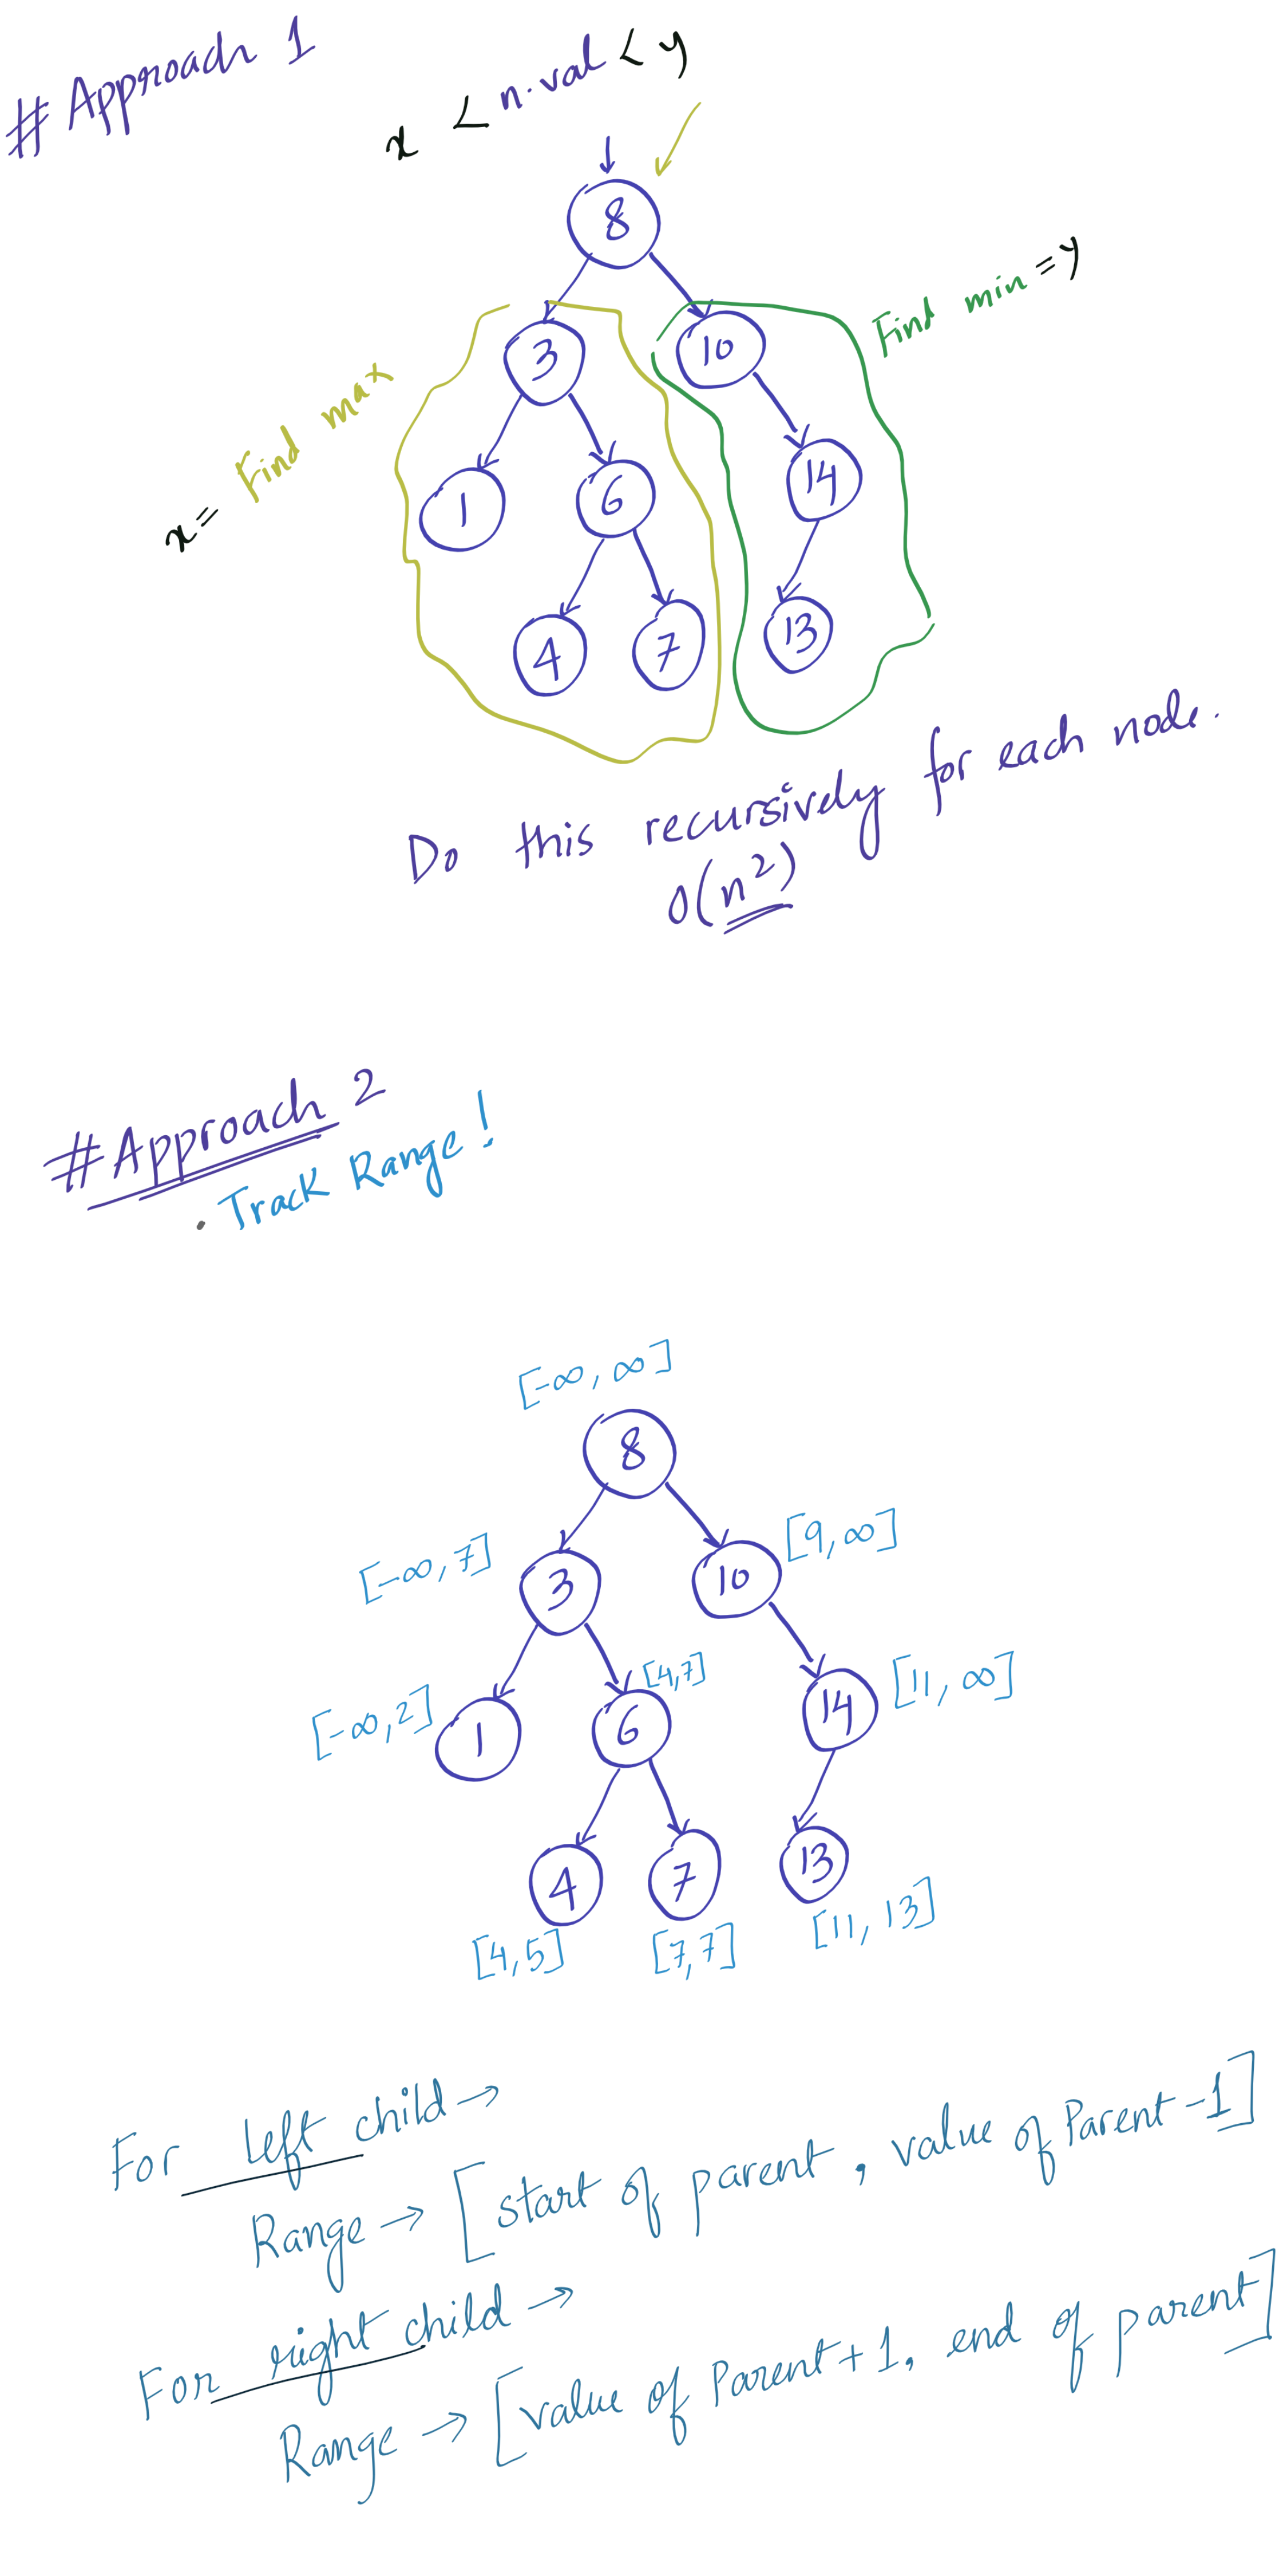 # Approach 1
x < n.val < y
8
Find min = y
3
10
x = Find max
1
6
14
4
7
13
Do this recursively for each node.
O(n²)
#Approach 2
. Track Range!
[-∞, ∞]
8
[-∞, 7]
3
10
[9, ∞]
[-∞, 2]
1
6
[4,7]
14
[11, ∞]
4
7
13
[4,5]
[7,7]
[11, 13]
For left child →
Range → [start of parent, value of Parent -1]
For right child →
Range → [value of Parent + 1, end of parent]